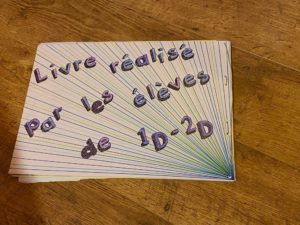 Livre réalisé
par les élèves
de 1D-2D